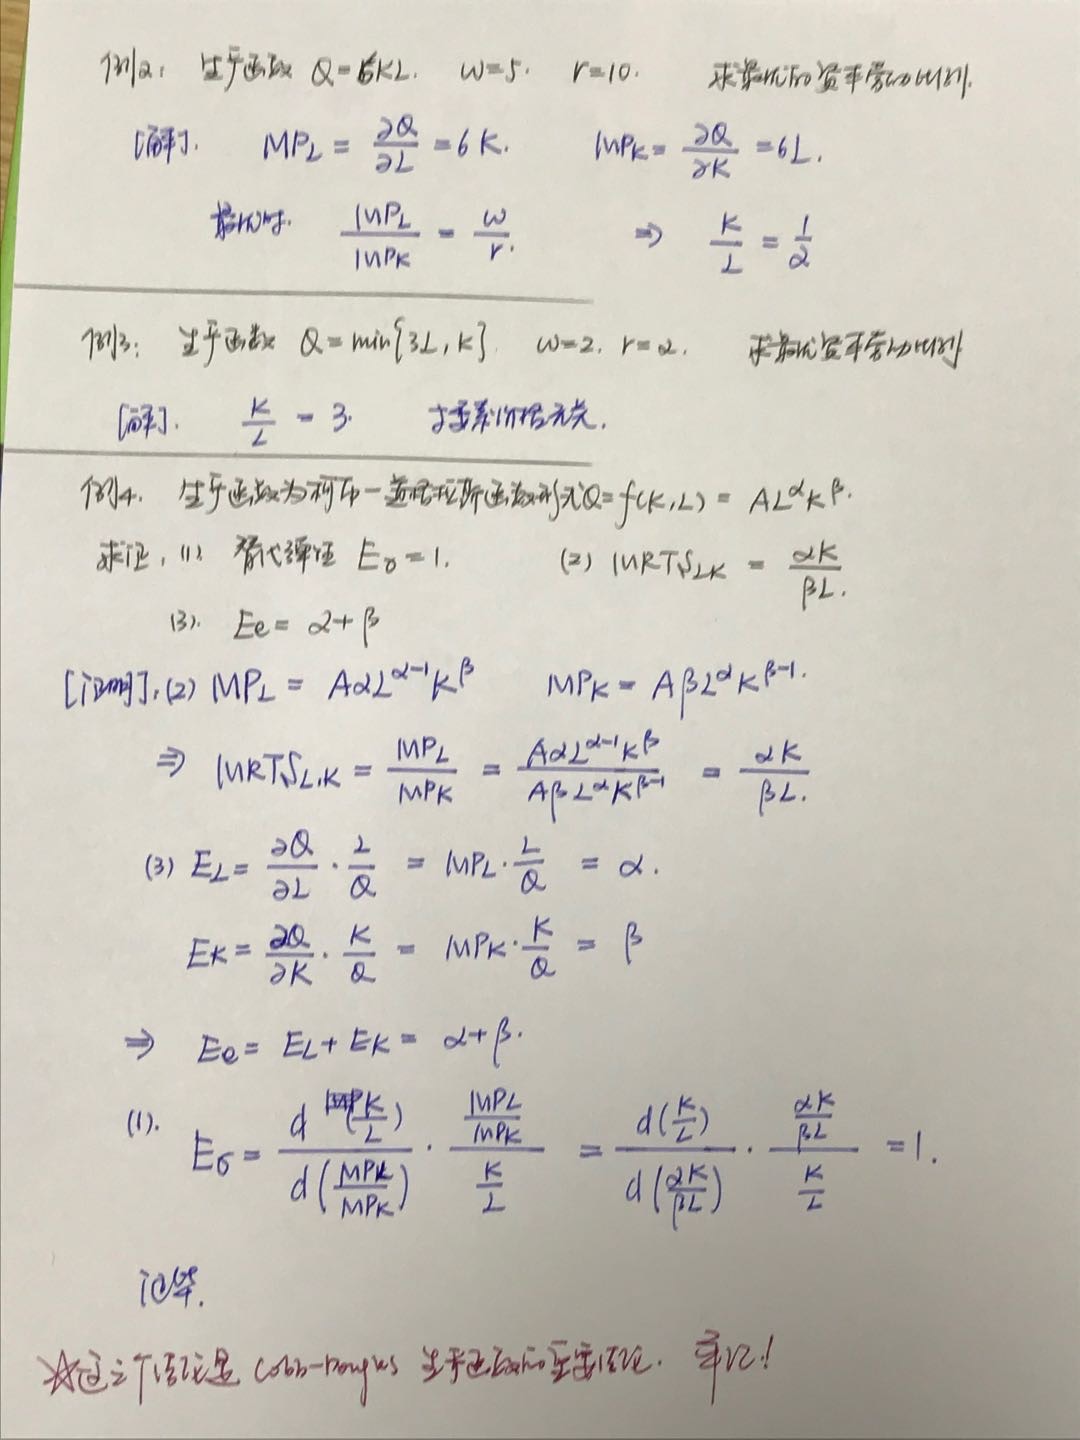 例2: 生产函数 Q=6KL. w=5. r=10. 求最优的资本劳动比例.
[解]. MP_L = ∂Q/∂L = 6K. MP_K = ∂Q/∂K = 6L.
最优时. MP_L/MP_K = w/r. ⇒ K/L = 1/2
例3: 生产函数 Q=min{3L,K}. w=2. r=2. 求最优资本劳动比例
[解]. K/L = 3. 与要素价格无关.
例4. 生产函数为柯布-道格拉斯函数形式Q=f(K,L) = AL^αK^β.
求证, (1) 替代弹性 E_σ=1. (2) MRTS_LK = αK/βL.
(3). Ee= α+β
[证明],(2) MP_L = AαL^(α-1)K^β MP_K = AβL^αK^(β-1).
⇒ MRTS_L,K = MP_L/MP_K = AαL^(α-1)K^β/AβL^αK^(β-1) = αK/βL.
(3) E_L = ∂Q/∂L · L/Q = MP_L · L/Q = α.
E_K = ∂Q/∂K · K/Q = MP_K · K/Q = β
⇒ Ee= E_L + E_K = α+β.
(1). E_σ = d(K/L)/d(MP_L/MP_K) · (MP_L/MP_K)/(K/L) = d(K/L)/d(αK/βL) · (αK/βL)/(K/L) = 1.
证毕.
☆这三个结论是 Cobb-Douglas 生产函数的重要结论. 牢记!